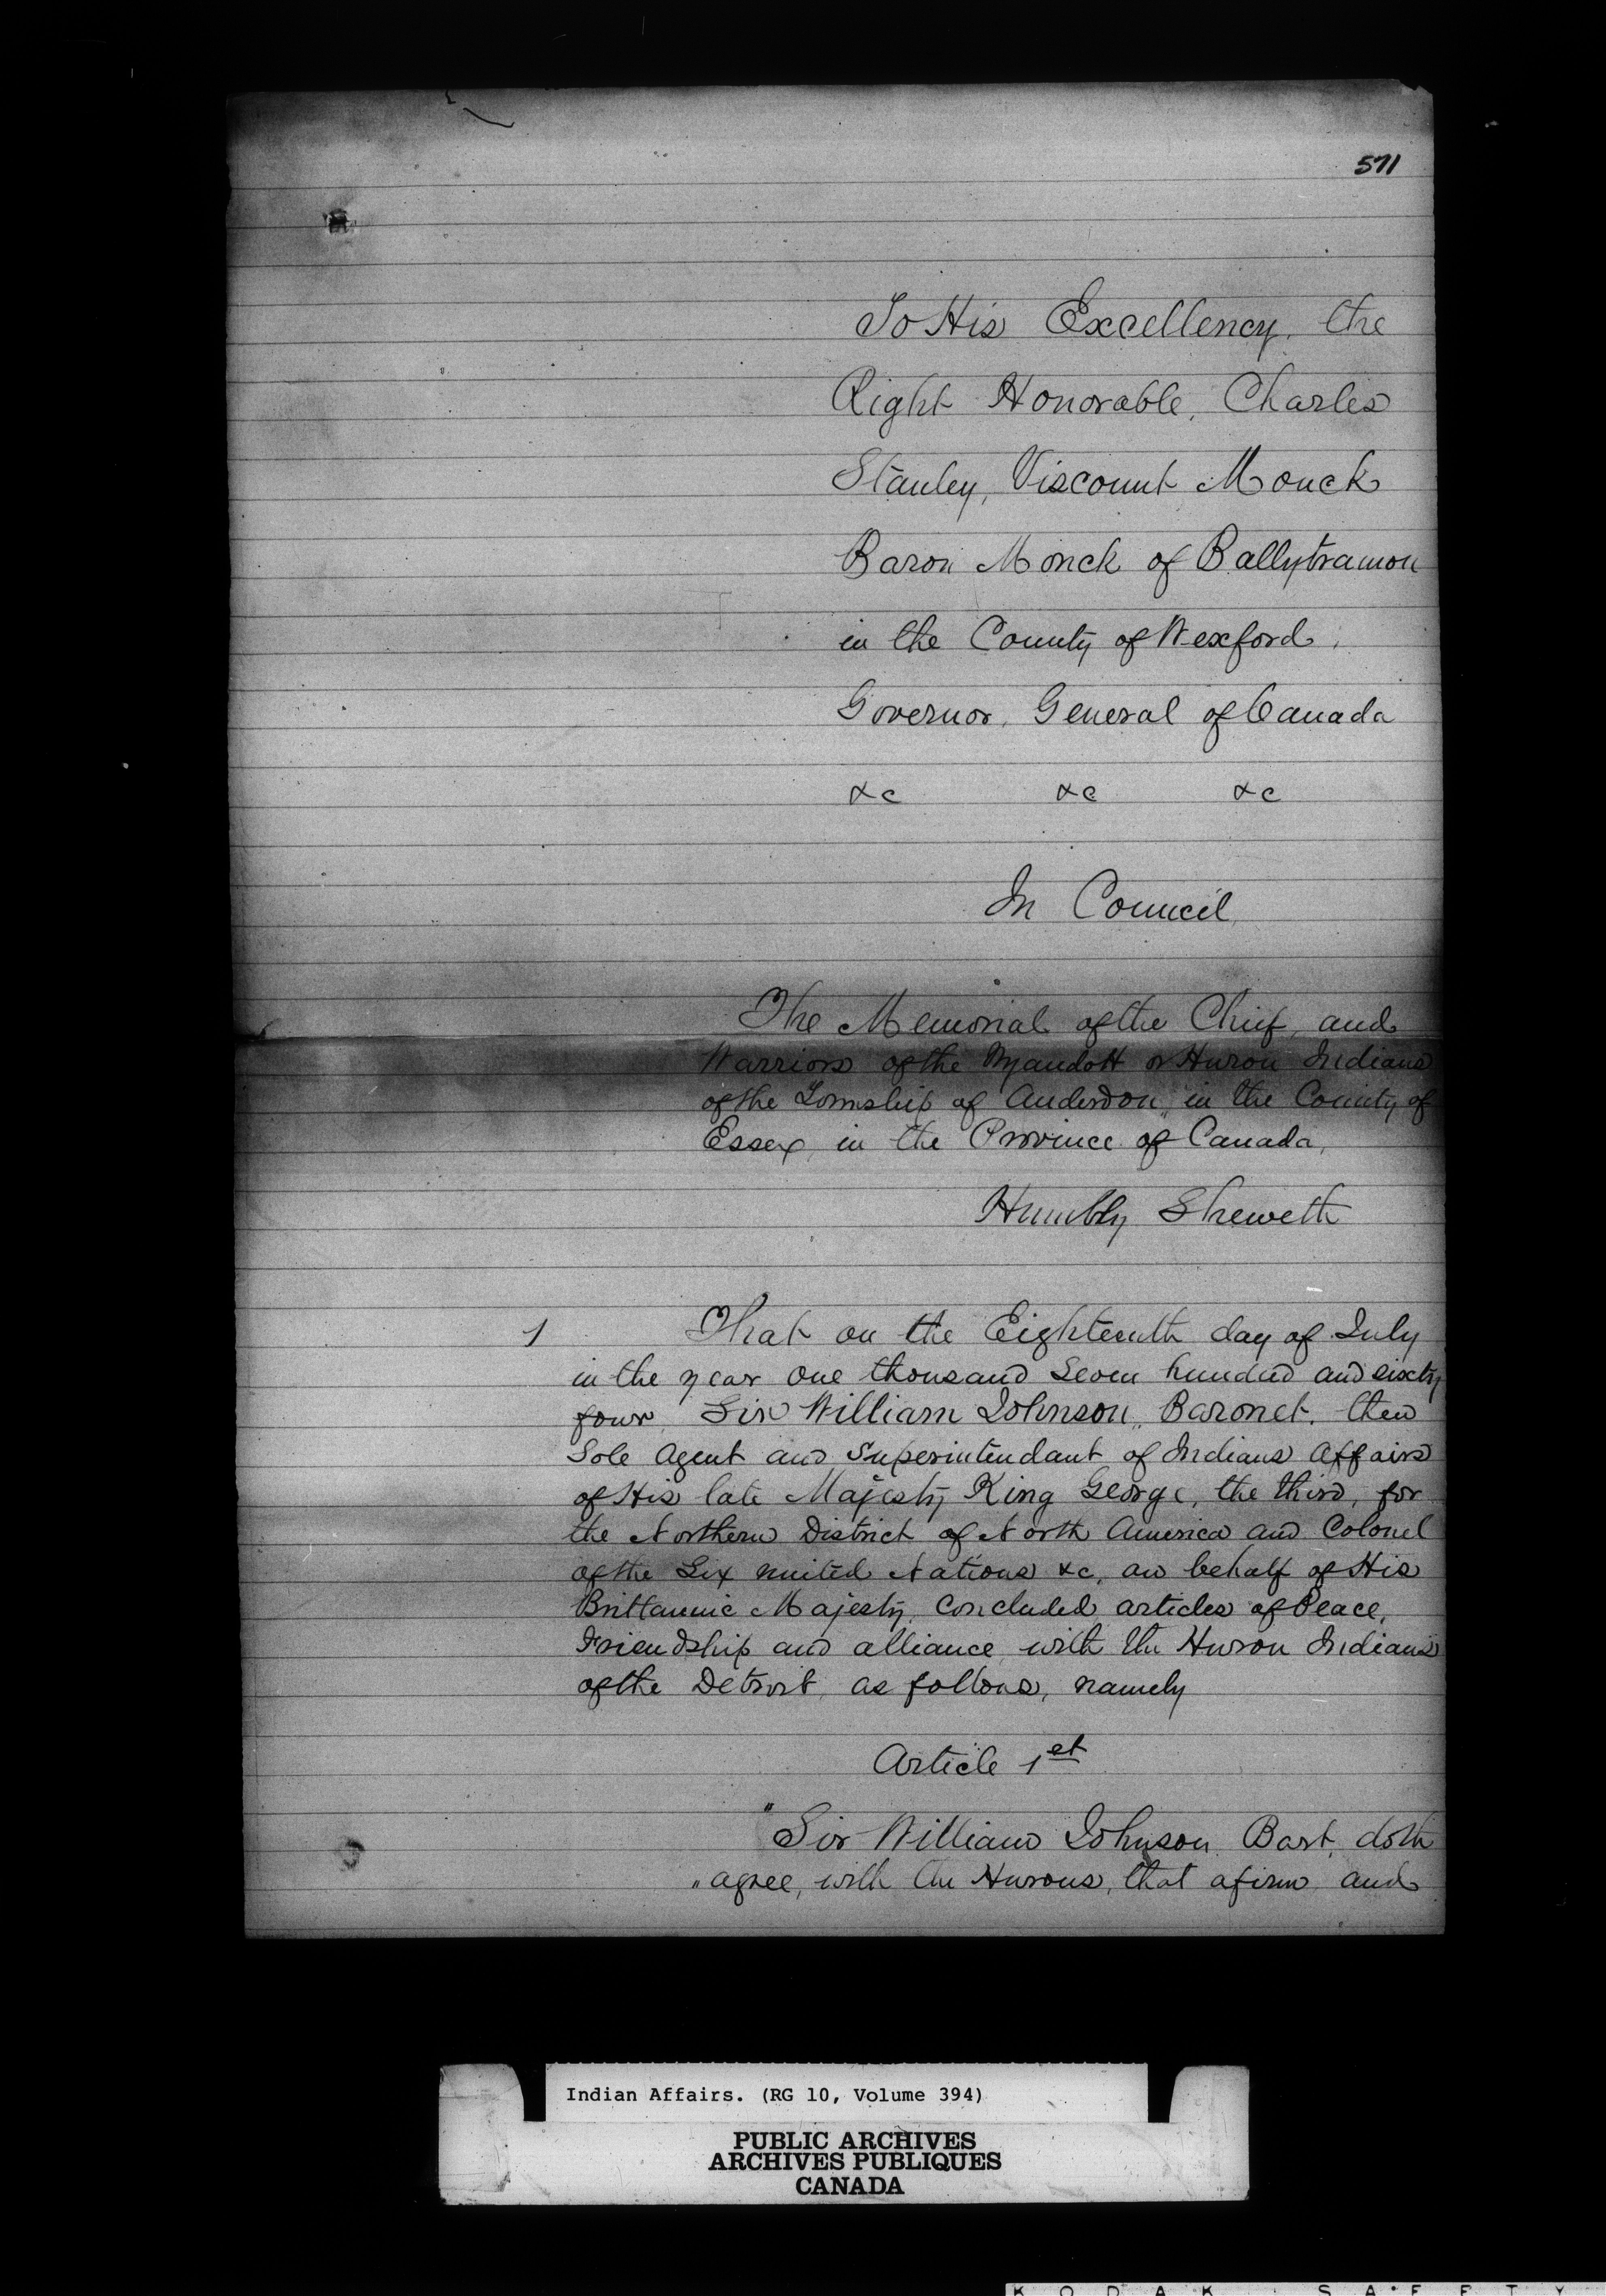 571
To His Excellency, the
Right Honorable, Charles
Stanley, Viscount Monck
Baron Monck of Ballytramon
in the County of Wexford,
Governor, General of Canada
&c &c &c
In Council
The Memorial of the Chief, and
Warriors of the Wyandott or Huron Indians
of the Township of Anderdon, in the County of
Essex, in the Province of Canada,
Humbly Sheweth
1 That on the Eighteenth day of July
in the year one thousand Seven hundred and sixty
four, Sir William Johnson, Baronet, then
Sole Agent and Superintendant of Indians Affairs
of His late Majesty King George, the third, for
the Northern District of North America and Colonel
of the Six united Nations &c, on behalf of His
Brittannic Majesty, Concluded articles of Peace,
Friendship and alliance, with the Huron Indians
of the Detroit, as follows, namely
Article 1st
"Sir William Johnson, Bart, doth
"agree, with the Hurons, that a firm and
Indian Affairs. (RG 10, Volume 394)
PUBLIC ARCHIVES
ARCHIVES PUBLIQUES
CANADA
KODAK SAFETY